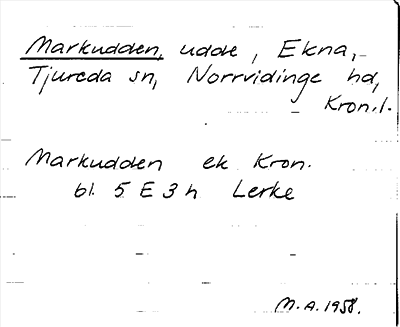 Markudden, udde, Ekna,
Tjureda sn, Norrvidinge hd,
Kron.l.
Markudden ek Kron.
bl. 5 E 3 h Lerke
M.A. 1958.